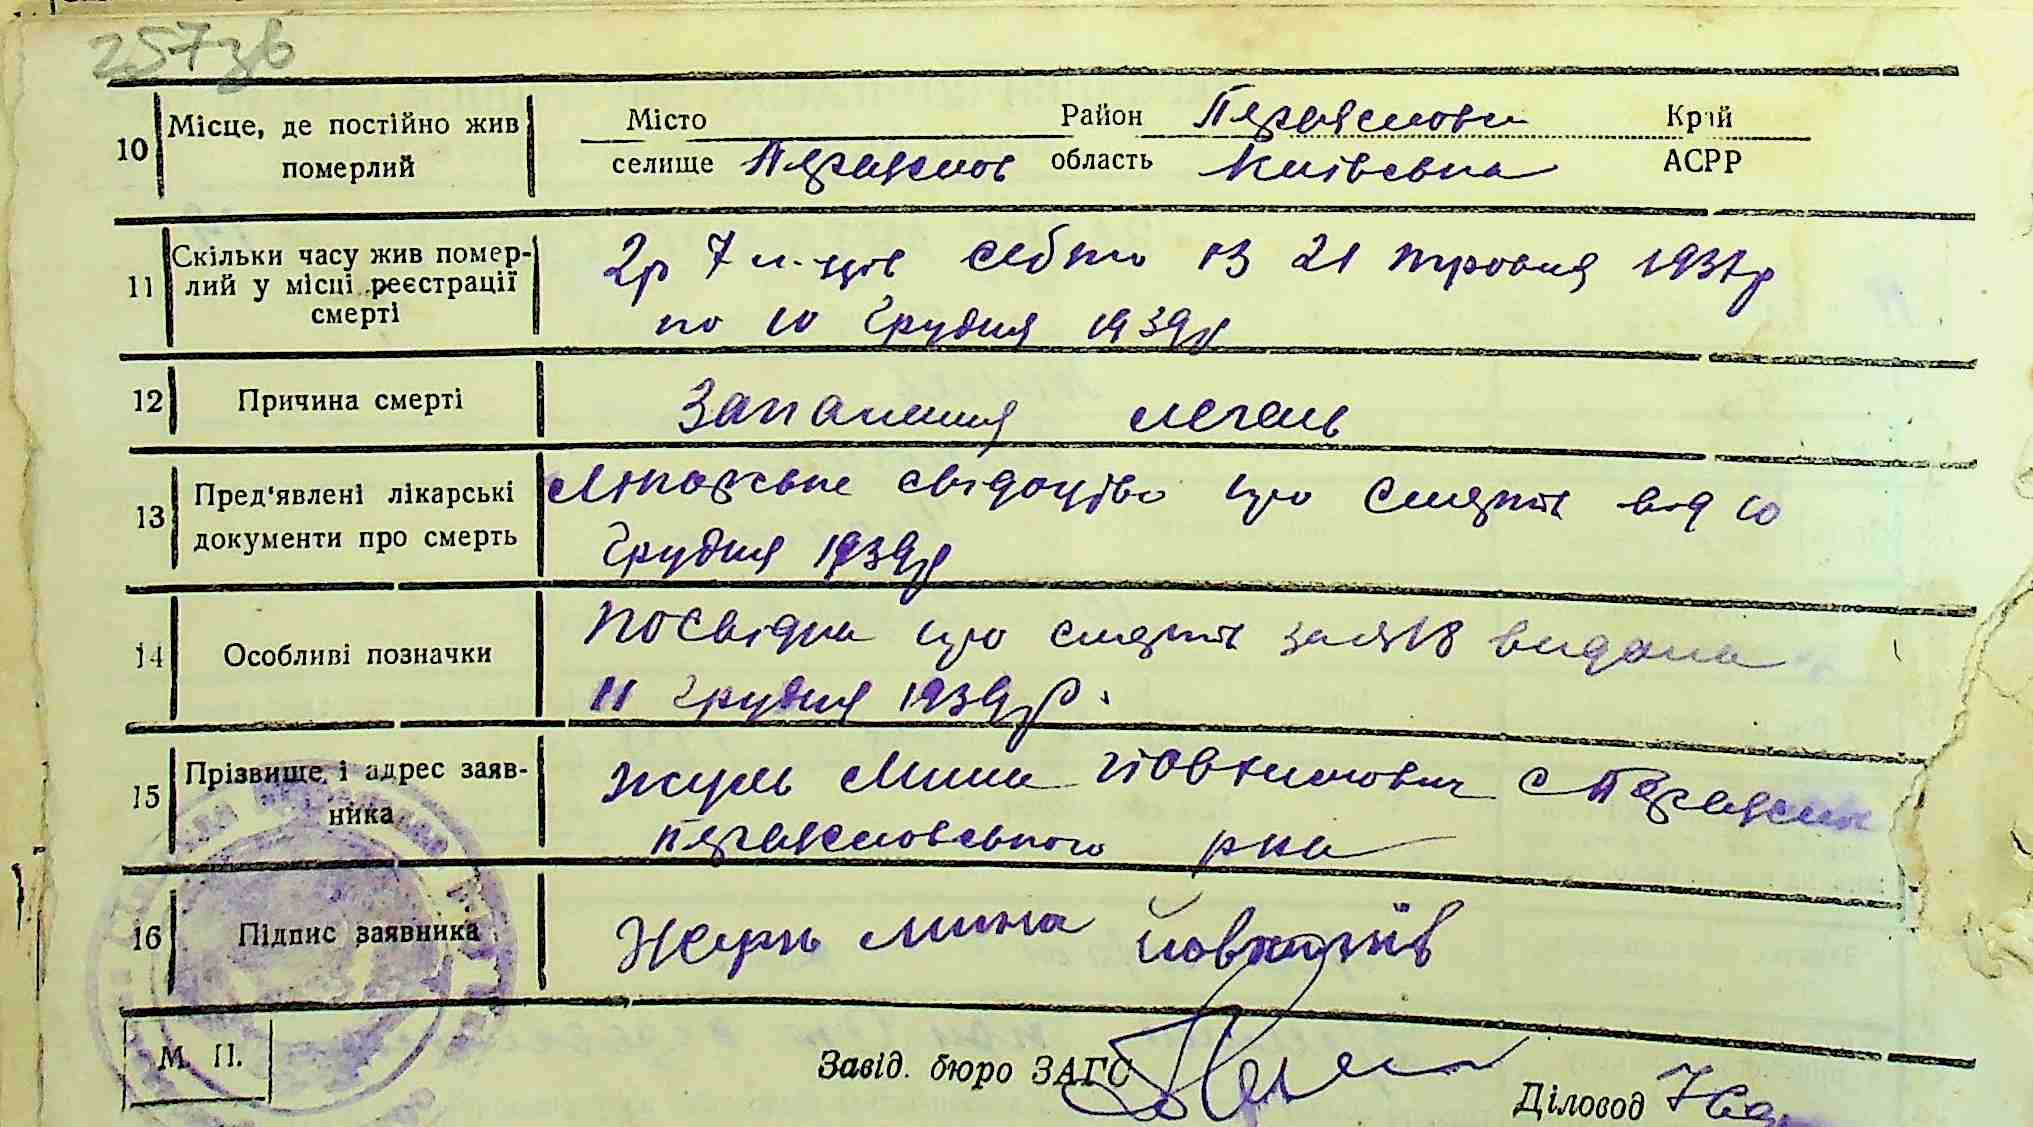 257зв
10 Місце, де постійно жив померлий
Місто Район Переяслови Край
селище Переяслов область Київсвка АСРР
11 Скільки часу жив помер-
лий у місці реєстрації
смерті
2р 7 м-ців себто із 21 травня 1937р
по 10 Грудня 1939р
12 Причина смерті
Запалення легень
13 Пред'явлені лікарські
документи про смерть
Лікарське свідоцтво про смерть від 10
Грудня 1939р
14 Особливі позначки
Посвідка про смерть за №18 видана
11 грудня 1939р.
15 Прізвище і адрес заяв-
ника
Жуль Мина Йовхимович с Переяслов
переясловського р-на
16 Підпис заявника
Мина
М. П.
Завід. бюро ЗАГС
Діловод